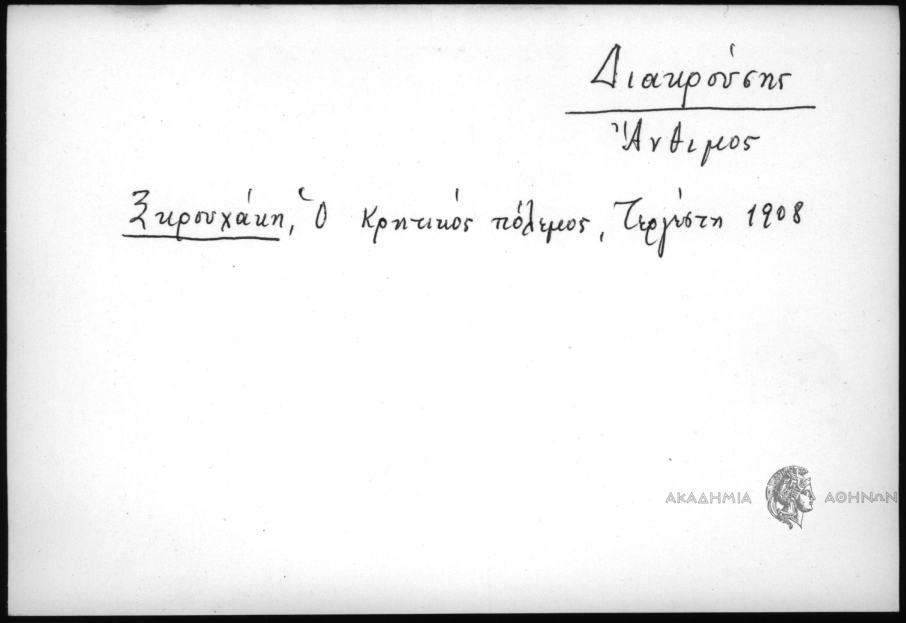 Διακρούσης
Ἄνθιμος
Ξηρουχάκη, Ὁ Κρητικός πόλεμος, Τεργέστη 1908
ΑΚΑΔΗΜΙΑ ΑΘΗΝΩΝ